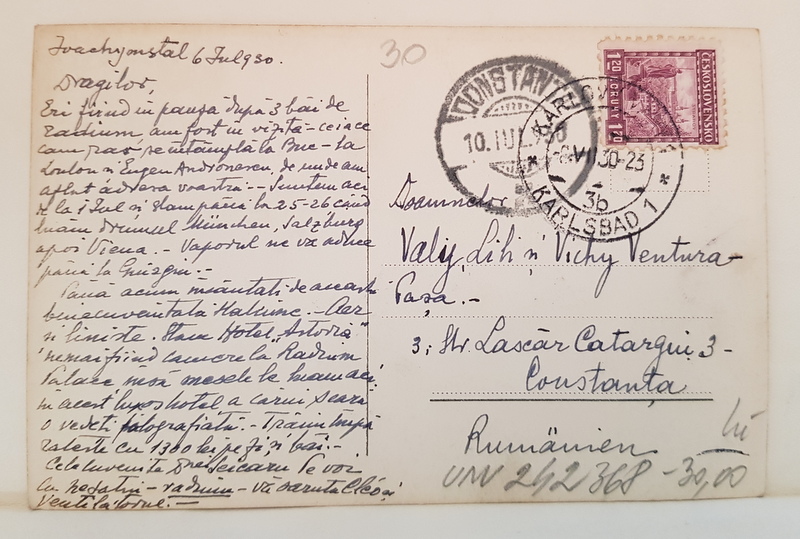 Joachymstal 6 Jul 930.
Dragilor,
Eri fiind in pauza după 3 băi de
radium am fost in vizită - ceiace
cam rar se intâmplă la Buc - la
Loulou si Eugen Andronescu, de unde am
aflat adresa voastră. - Suntem aci
de la 1 Jul si stăm până la 25-26 când
luăm drumul München, Salzburg
apoi Viena. - Vaporul ne va aduce
până la Giurgiu. -
Până acum incântati de această
binecuvântată - Aer
si liniste. Stăm Hotel "Astoria"
nemai fiind camere la Radium
Palace insă mesele le luam aci
in acest hotel a cărui seară
o vedeti fotografiată. - Trăim
cu 1300 lei pe zi si băi. -
Cele cuvenite
cu - radium - Vă sărută Cleo si
30
CONSTANTA
10. IUL. 930
KARLOVY
VII 30-23
* 3b *
KARLSBAD 1
ČESKOSLOVENSKO
1.20 KORUNY 1.20
Doamnelor
Valy, Lili si Vichy Ventura-
Pașa. -
3; Str. Lascăr Catargiu 3 -
Constanța
Rumänien
UNV 242368 - 30,00